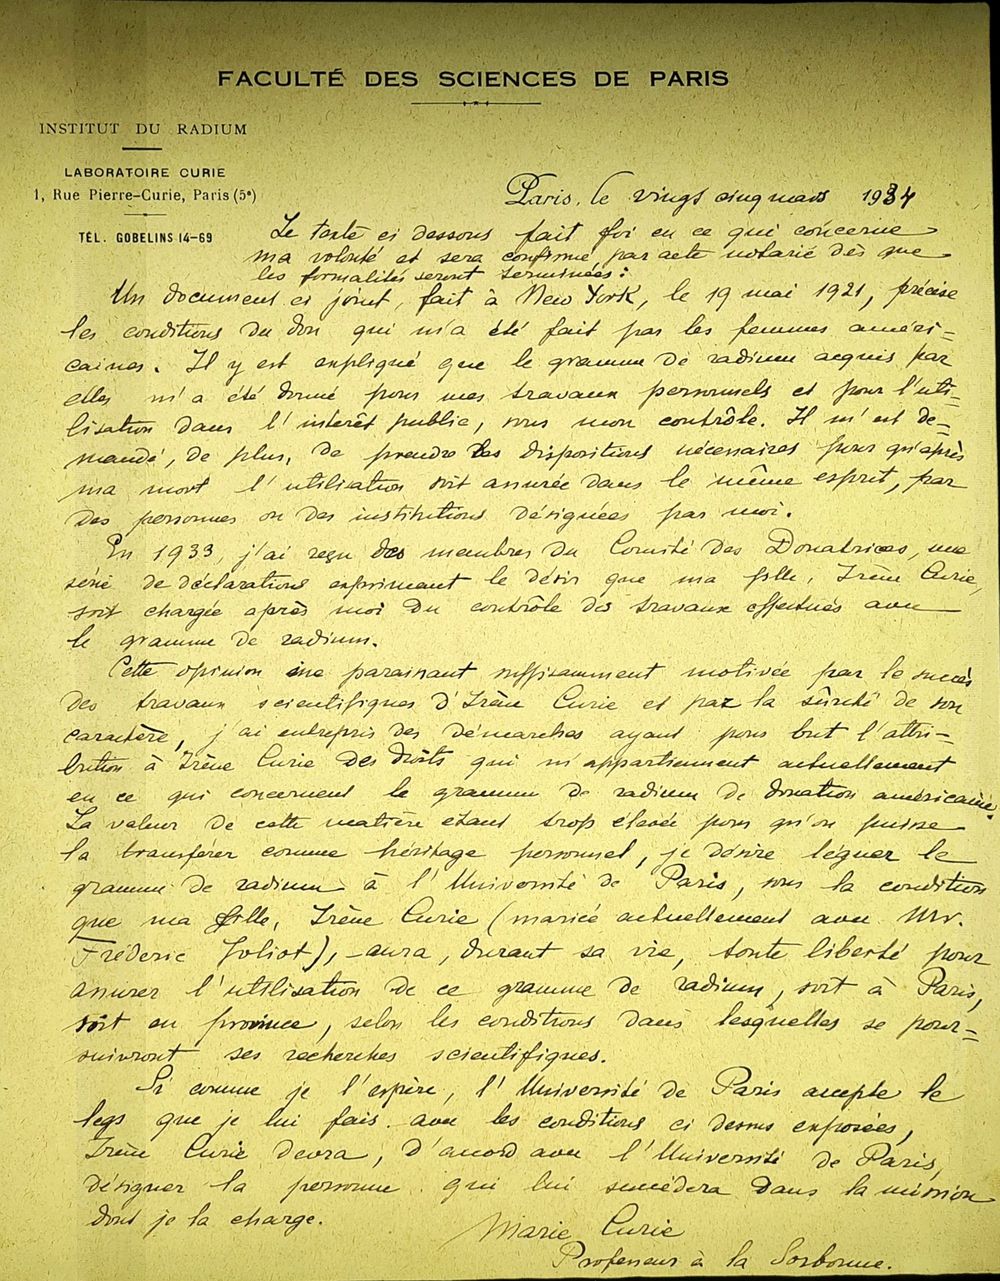 FACULTÉ DES SCIENCES DE PARIS
INSTITUT DU RADIUM
LABORATOIRE CURIE
1, Rue Pierre-Curie, Paris (5e)
TÉL. GOBELINS 14-69
Paris, le vingt cinq mars 1934
Le texte ci dessous fait foi en ce qui concerne
ma volonté et sera confirmé par acte notarié dès que
les formalités seront terminées :
Un document ci joint, fait à New York, le 19 mai 1921, précise
les conditions du don qui m'a été fait par les femmes améri=
caines. Il y est expliqué que le gramme de radium acquis par
elles m'a été donné pour mes travaux personnels et pour l'uti=
lisation dans l'intérêt public, sous mon contrôle. Il m'est de=
mandé, de plus, de prendre les dispositions nécessaires pour qu'après
ma mort l'utilisation soit assurée dans le même esprit, par
des personnes ou des institutions désignées par moi.
En 1933, j'ai reçu des membres du Comité des Donatrices, une
série de déclarations exprimant le désir que ma fille, Irène Curie,
soit chargée après moi du contrôle des travaux effectués avec
le gramme de radium.
Cette opinion me paraissant suffisamment motivée par le succès
des travaux scientifiques d'Irène Curie et par la sûreté de son
caractère, j'ai entrepris des démarches ayant pour but l'attri=
bution à Irène Curie des droits qui m'appartiennent actuellement
en ce qui concernent le gramme de radium de donation américaine.
La valeur de cette matière étant trop élevée pour qu'on puisse
la transférer comme héritage personnel, je désire léguer le
gramme de radium à l'Université de Paris, sous la condition
que ma fille, Irène Curie (mariée actuellement avec Mr.
Fréderic Joliot), aura, durant sa vie, toute liberté pour
assurer l'utilisation de ce gramme de radium, soit à Paris,
soit en province, selon les conditions dans lesquelles se pour=
suivront ses recherches scientifiques.
Si comme je l'espère, l'Université de Paris accepte le
legs que je lui fais avec les conditions ci dessus exposées,
Irène Curie devra, d'accord avec l'Université de Paris,
désigner la personne qui lui succédera dans la mission
dont je la charge.
Marie Curie
Professeur à la Sorbonne.